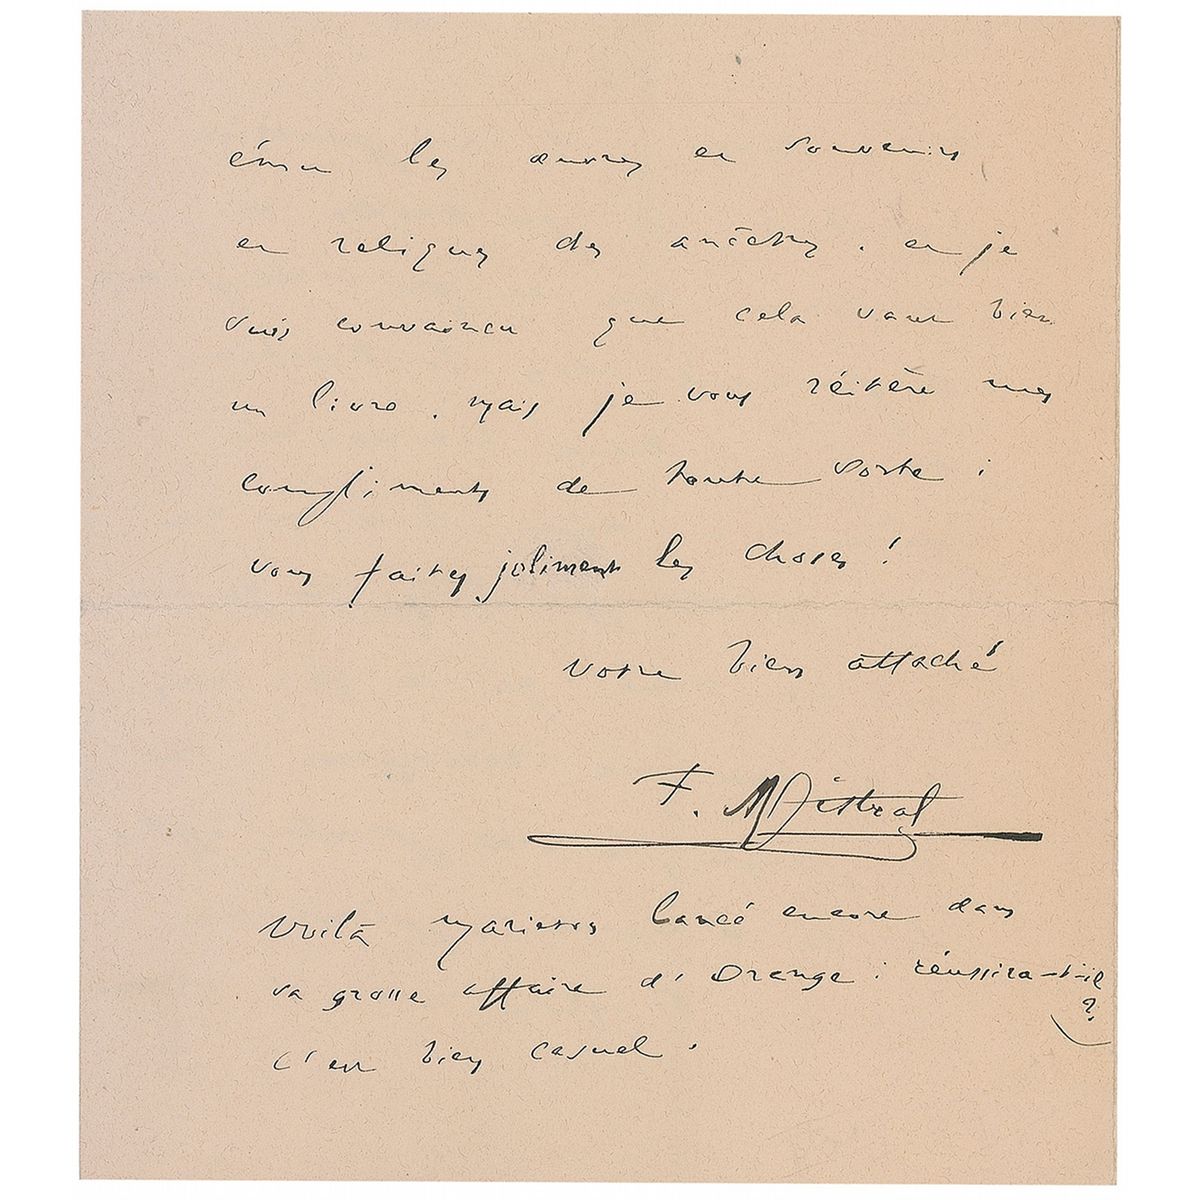 ému les œuvres et souvenirs
et reliques des ancêtres. et je
suis convaincu que cela vaut bien
un livre. mais je vous réitère mes
compliments de toute sorte :
vous faites joliment les choses !
votre bien attaché
F. Mistral
Voilà Mariéton lancé encore dans
sa grosse affaire d'Orange : réussira-t-il
?
c'est bien casuel.